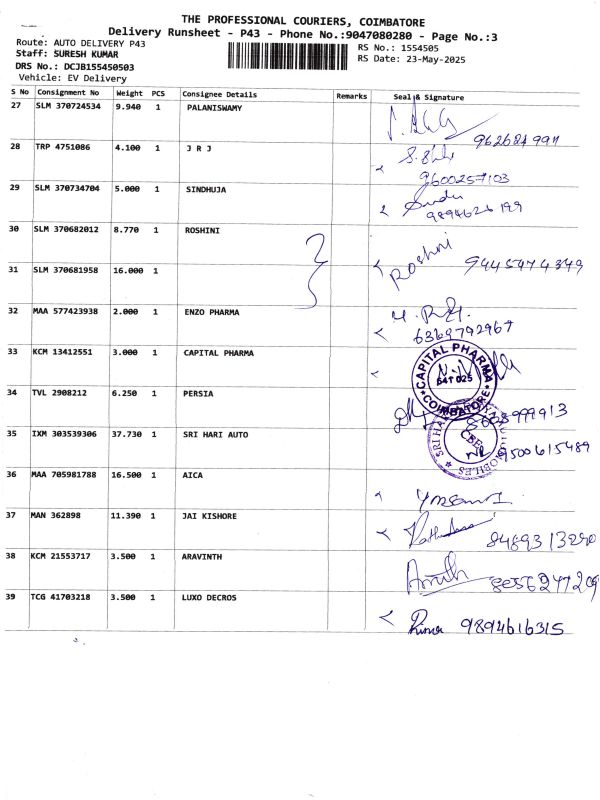 THE PROFESSIONAL COURIERS, COIMBATORE
Delivery Runsheet - P43 - Phone No.:9047080280 - Page No.:3
Route: AUTO DELIVERY P43
Staff: SURESH KUMAR
DRS No.: DCJB155450503
Vehicle: EV Delivery
RS No.: 1554505
RS Date: 23-May-2025
S No Consignment No Weight PCS Consignee Details Remarks Seal & Signature
27 SLM 370724534 9.940 1 PALANISWAMY
28 TRP 4751086 4.100 1 J R J
9600257103
29 SLM 370734704 5.000 1 SINDHUJA
9894626199
30 SLM 370682012 8.770 1 ROSHINI
Roshni 9445474349
31 SLM 370681958 16.000 1
32 MAA 577423938 2.000 1 ENZO PHARMA
6369792967
33 KCM 13412551 3.000 1 CAPITAL PHARMA
CAPITAL PHARMA
COIMBATORE
34 TVL 2908212 6.250 1 PERSIA
35 IXM 303539306 37.730 1 SRI HARI AUTO
CBE
9500615489
36 MAA 705981788 16.500 1 AICA
37 MAN 362898 11.390 1 JAI KISHORE
8489313290
38 KCM 21553717 3.500 1 ARAVINTH
8056247209
39 TCG 41703218 3.500 1 LUXO DECROS
9894616315